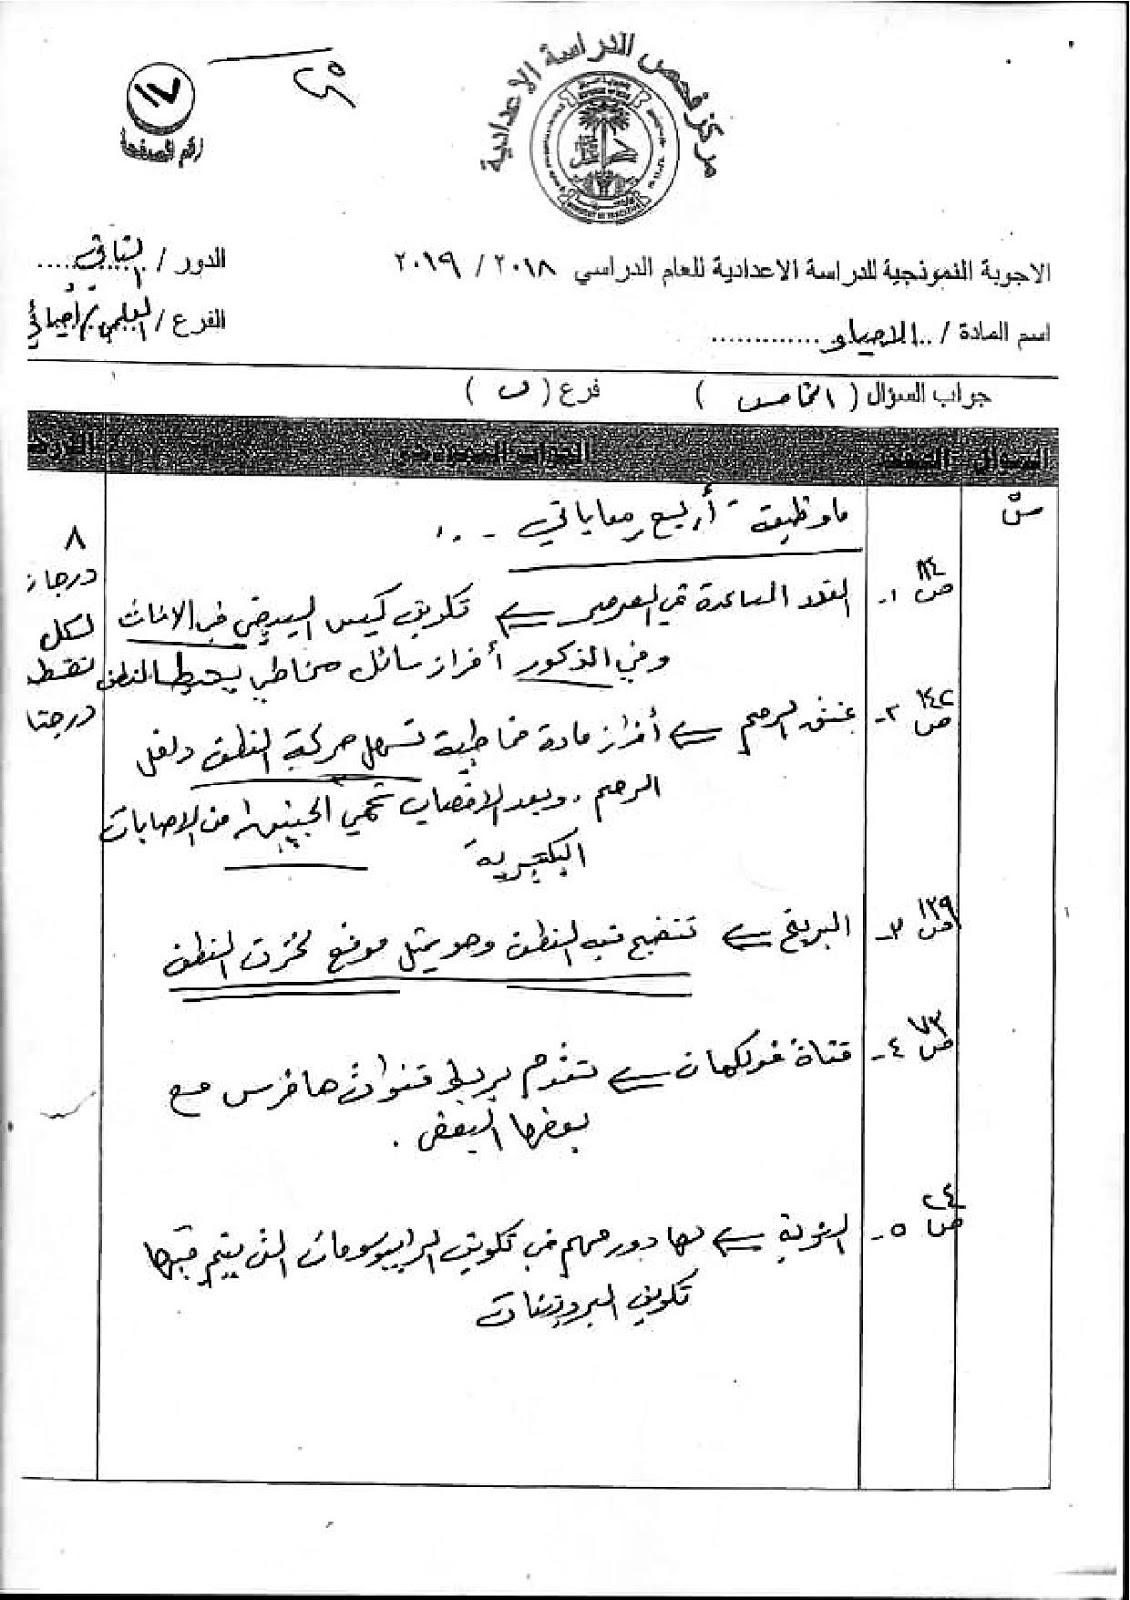 مركز فحص الدراسة الاعدادية
١٧
رقم الصفحة
الاجوبة النموذجية للدراسة الاعدادية للعام الدراسي ٢٠١٨ / ٢٠١٩
الدور / الثاني
اسم المادة / الاحياء
الفرع / العلمي / أحيائي
جواب السؤال ( الخامس ) فرع ( ب )
السؤال الصفحة الجواب النموذجي
ما وظيفة أربع مما يأتي
٨
درجات
لكل
نقطة
درجتا
ص ٨٤ ١- الغدد المساعدة في الصرصر ⇐ تكوين كيس البيض في الاناث
وفي الذكور أفراز سائل مخاطي يحيط بالنطف
ص ١٤٢ ٢- عنق الرحم ⇐ أفراز مادة مخاطية تسهل حركة النطف داخل
الرحم . وبعد الاخصاب تحمي الجنين من الاصابات
البكتيرية
ص ١٣٩ ٣- البربخ ⇐ تنضج فيه النطف وهو يمثل موقع لخزن النطف
ص ٧٣ ٤- قناة فولكمان ⇐ تقوم بربط قنوات هافرس مع
بعضها البعض .
ص ٢٤ ٥- النوية ⇐ لها دور مهم في تكوين الرايبوسومات التي يتم فيها
تكوين البروتينات